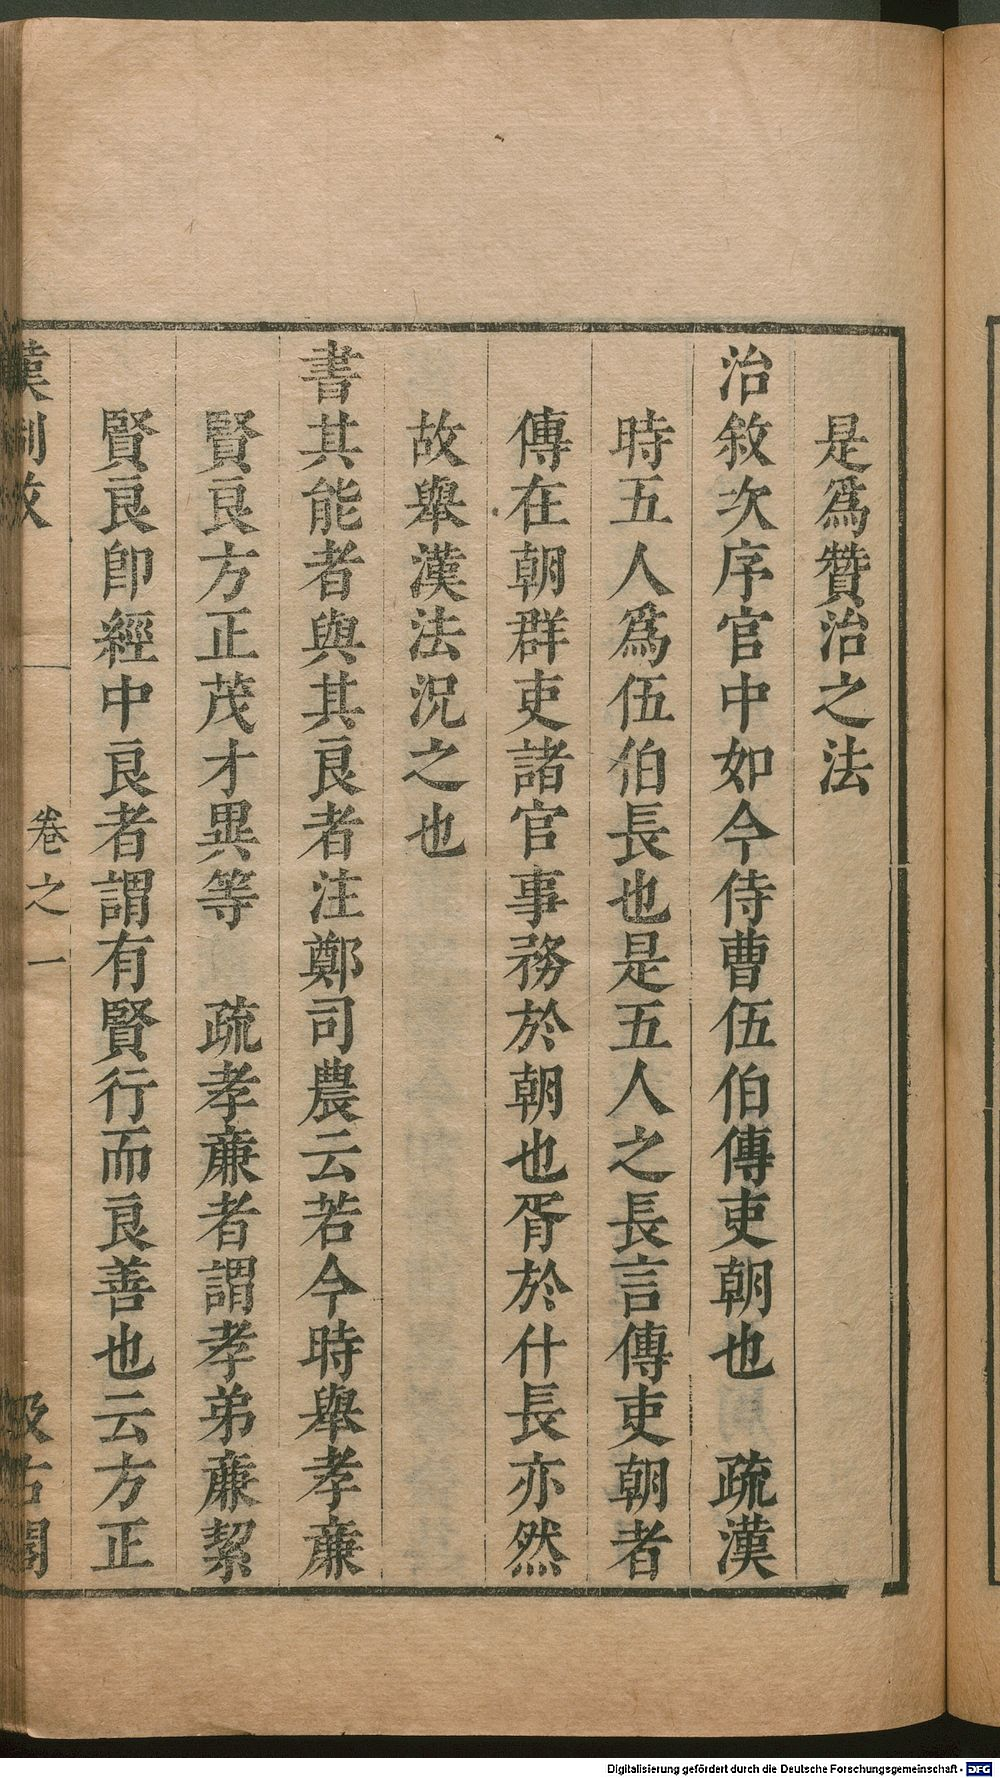 是爲贊治之法
治敘次序官中如今侍曹伍伯傳吏朝也　疏漢
時五人爲伍伯長也是五人之長言傳吏朝者
傳在朝群吏諸官事務於朝也胥於什長亦然
故舉漢法況之也
書其能者與其良者注鄭司農云若今時舉孝廉
賢良方正茂才異等　疏孝廉者謂孝弟廉絜
賢良即經中良者謂有賢行而良善也云方正
漢制攷　卷之一　汲古閣
Digitalisierung gefördert durch die Deutsche Forschungsgemeinschaft - DFG